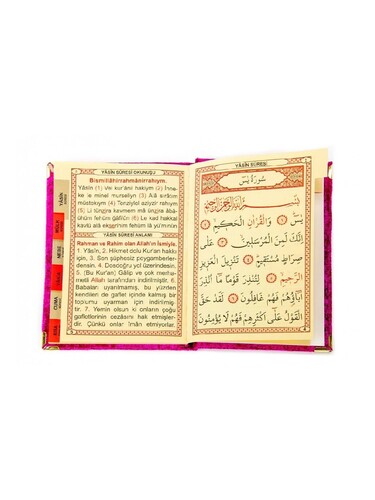 YÂSÎN SÛRESİ OKUNUŞU
Bismillâhirrahmânirrahıym.
Yâsin (1) Vel kur'âni hakiym (2) İnne-
ke le minel murseliyn (3) Alâ sırâtım
müstekıym (4) Tenziylel aziyzir rahıym
(5) Li tünzira kavmem mâ ünzira âbâ-
ühüm fehüm gâfilûn (6) Le kad hakkal
kavlü alâ ekserihim fehüm lâ yu'minûn
YÂSÎN SÛRESİ ANLAMI
Rahman ve Rahim olan Allah'ın İsmiyle.
1. Yâsîn, 2. Hikmet dolu Kur'an hakkı
için, 3. Sen şüphesiz peygamberler-
densin. 4. Dosdoğru yol üzerindesin.
5. (Bu Kur'an) Gâlip ve çok merhamet-
li Allah tarafından indirilmiştir. 6.
Babaları uyarılmamış, bu yüzden
kendileri de gaflet içinde kalmış bir
toplumu uyarman için indirilmiş-
tir. 7. Yemin olsun ki onların çoğu
gafletlerinin cezasını hak etmişler-
dir. Çünkü onlar îman etmiyorlar.
YÂSÎN
NEBE
CUMA
YÂSÎN SÛRESİ
سُورَةُ يٰسٓ
بِسْمِ اللّٰهِ الرَّحْمٰنِ الرَّحِيمِ
يٰسٓ ﴿١﴾ وَالْقُرْاٰنِ الْحَكِيمِ ﴿٢﴾
اِنَّكَ لَمِنَ الْمُرْسَلِينَ ﴿٣﴾ عَلٰى
صِرَاطٍ مُسْتَقِيمٍ ﴿٤﴾ تَنْزِيلَ الْعَزِيزِ
الرَّحِيمِ ﴿٥﴾ لِتُنْذِرَ قَوْمًا مَٓا اُنْذِرَ
اٰبَٓاؤُ۬هُمْ فَهُمْ غَافِلُونَ ﴿٦﴾ لَقَدْ حَقَّ
الْقَوْلُ عَلٰٓى اَكْثَرِهِمْ فَهُمْ لَا يُؤْمِنُونَ